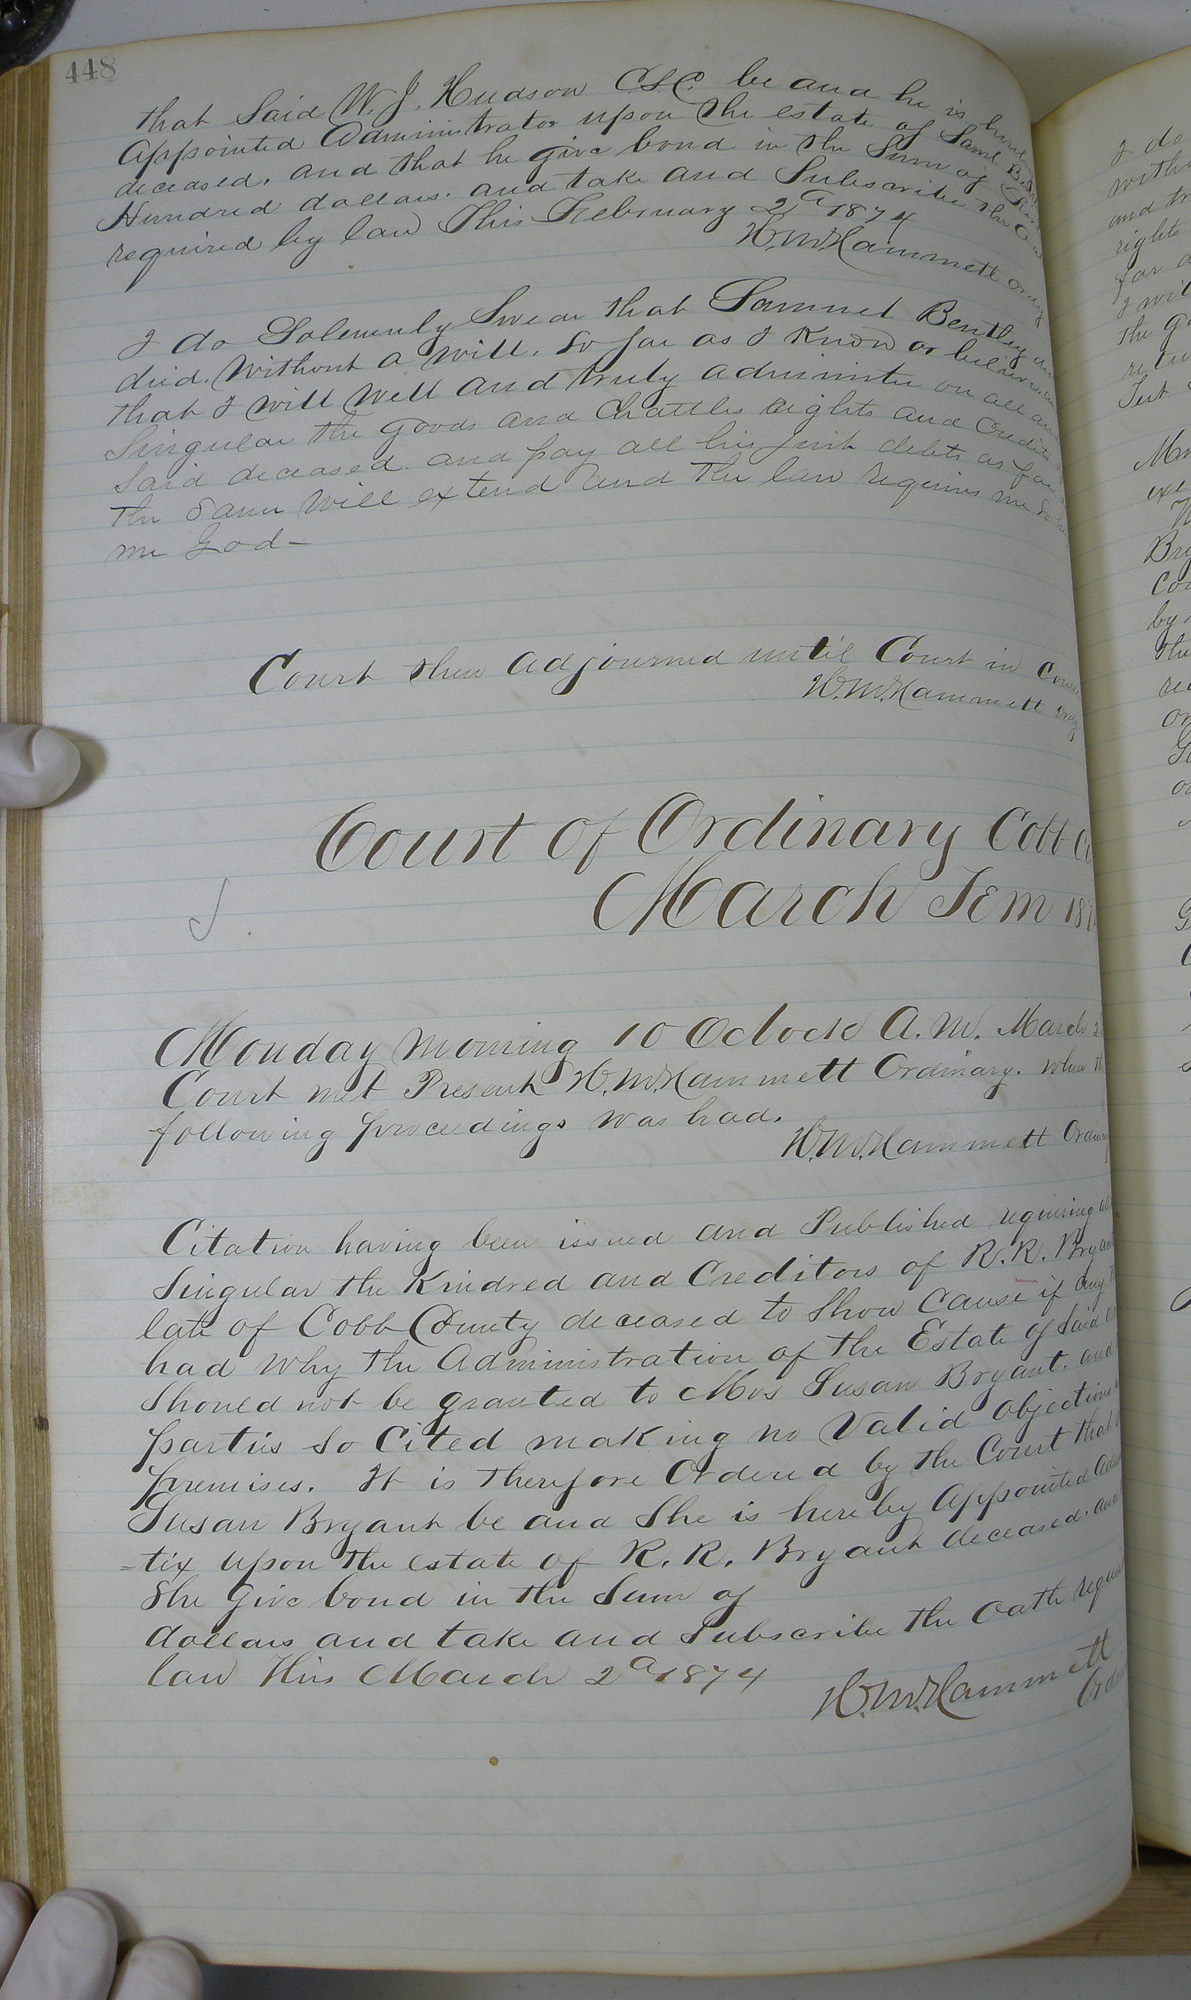 448
that Said W. J. Hudson C.S.C. be and he is
Appointed Administrator upon the estate of Saml B.
deceased. and that he give bond in the Sum of
Hundred dollars. and take and Subscribe the
required by law This February 2d 1874
H. M. Hammett Ordy
I do Solemnly Swear that Samuel Bentley
died. Without a will. So far as I Know or believe
that I will well and truly administer on all and
Singular the goods and Chattles rights and Credits
Said deceased. and pay all his just debts as far
the Same Will extend and the law requires me So
me God—
Court then adjourned until Court in
H. M. Hammett Ordy
Court of Ordinary Cobb Co
March Term 187
Monday Morning 10 Oclock A.M. March 2
Court met Present H. M. Hammett Ordinary. when th
following proceedings was had.
H. M. Hammett Ordin
Citation having been issued and Published requiring
Singular the Kindred and Creditors of R. R. Bryan
late of Cobb County deceased to Show Cause if any
had Why the Administration of the Estate of Said
Should not be granted to Mrs Susan Bryant. and
parties So Cited making no Valid objection
premises. It is therefore Ordered by the Court that
Susan Bryant be and She is hereby Appointed Ad
=tix upon the estate of R. R. Bryant deceased. and
She give bond in the Sum of
dollars and take and Subscribe the Oath requi
law This March 2d 1874
H. M. Hammett
Ord
I do
and
rights
far
I will
the